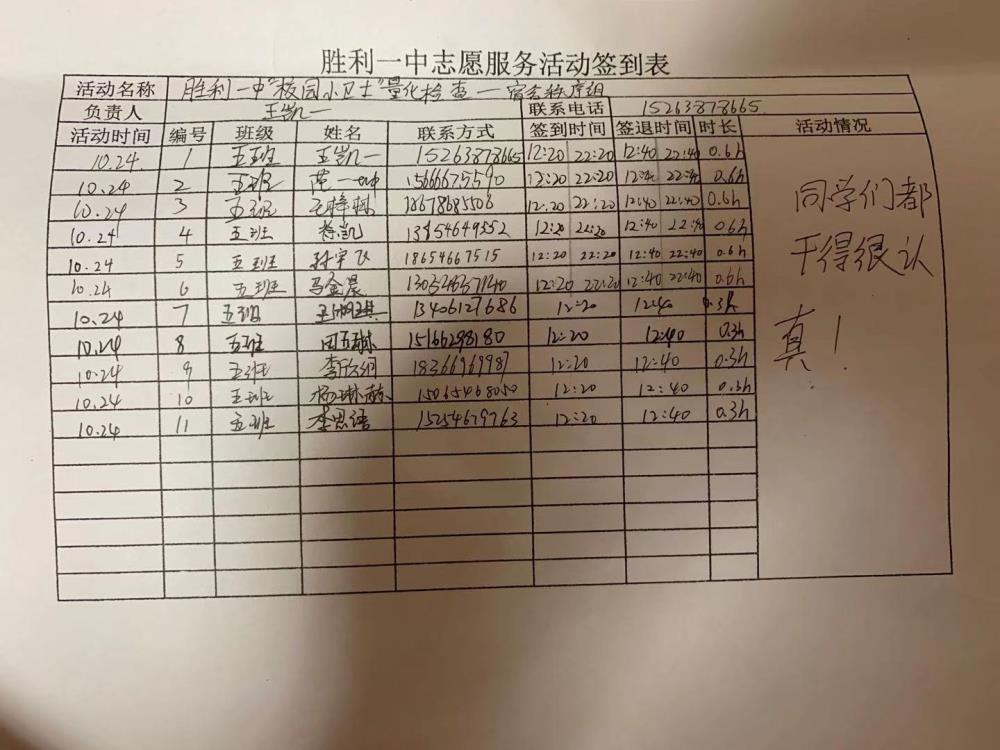 胜利一中志愿服务活动签到表
活动名称 胜利一中"校园小卫士"量化检查—宿舍秩序组
负责人 王凯一 联系电话 15263878665
活动时间 编号 班级 姓名 联系方式 签到时间 签退时间 时长 活动情况
10.24 1 五班 王凯一 15263878665 12:20 22:20 12:40 22:40 0.6h
10.24 2 五班 一 12:20 22:20 12:40 22:40 0.6h
10.24 3 五班 18678685506 12:20 22:20 12:40 22:40 0.6h
10.24 4 五班 12:20 22:20 12:40 22:40 0.6h
10.24 5 五班 孙宇飞 18654667515 12:20 22:20 12:40 22:40 0.6h
10.24 6 五班 马金晨 12:20 22:20 12:40 22:40 0.6h
10.24 7 五班 13406127686 12:20 12:40 0.3h
10.24 8 五班 15166298180 12:20 12:40 0.3h
10.24 9 五班 18366969987 12:20 12:40 0.3h
10.24 10 五班 杨琳赫 15065468050 12:20 12:40 0.3h
10.24 11 五班 李思语 15254679763 12:20 12:40 0.3h
同学们都
干得很认
真！